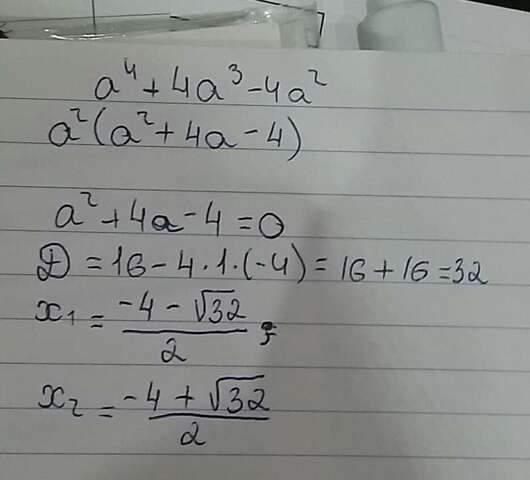 a⁴ + 4a³ - 4a²
a²(a² + 4a - 4)
a² + 4a - 4 = 0
D = 16 - 4 · 1 · (-4) = 16 + 16 = 32
x₁ = (-4 - √32)/2 ;
x₂ = (-4 + √32)/2